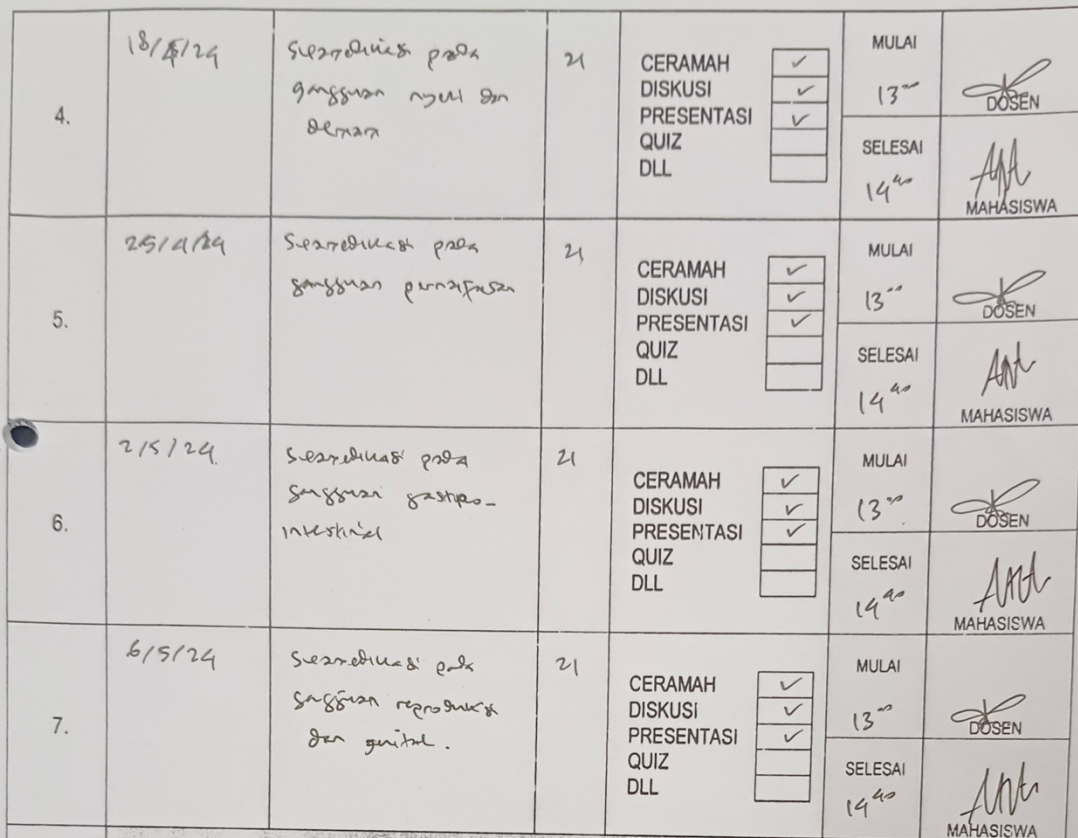 4.
18/4/24
Swamedikasi pada
gangguan nyeri dan
demam
21
CERAMAH ✓
DISKUSI ✓
PRESENTASI ✓
QUIZ
DLL
MULAI
13⁰⁰
DOSEN
SELESAI
14⁴⁰
MAHASISWA
5.
25/4/24
Swamedikasi pada
gangguan pernafasan
21
CERAMAH ✓
DISKUSI ✓
PRESENTASI ✓
QUIZ
DLL
MULAI
13⁰⁰
DOSEN
SELESAI
14⁴⁰
MAHASISWA
6.
2/5/24
Swamedikasi pada
gangguan gastro-
intestinal
21
CERAMAH ✓
DISKUSI ✓
PRESENTASI ✓
QUIZ
DLL
MULAI
13⁰⁰
DOSEN
SELESAI
14⁴⁰
MAHASISWA
7.
6/5/24
Swamedikasi pada
gangguan reproduksi
dan genital.
21
CERAMAH ✓
DISKUSI ✓
PRESENTASI ✓
QUIZ
DLL
MULAI
13⁰⁰
DOSEN
SELESAI
14⁴⁰
MAHASISWA